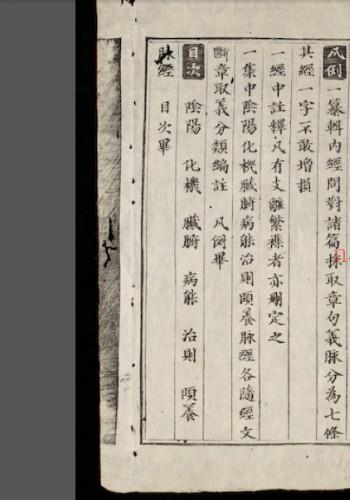 凡例一纂輯內經問對諸篇採取章句義脉分為七條
其經一字不敢增損
一經中註釋凡有支離繁襍者亦刪定之
一集中陰陽化機臟腑病能治則頤養脉經各隨經文
斷章取義分類編註 凡例畢
目次 陰陽 化機 臟腑 病能 治則 頤養
脉經 目次畢